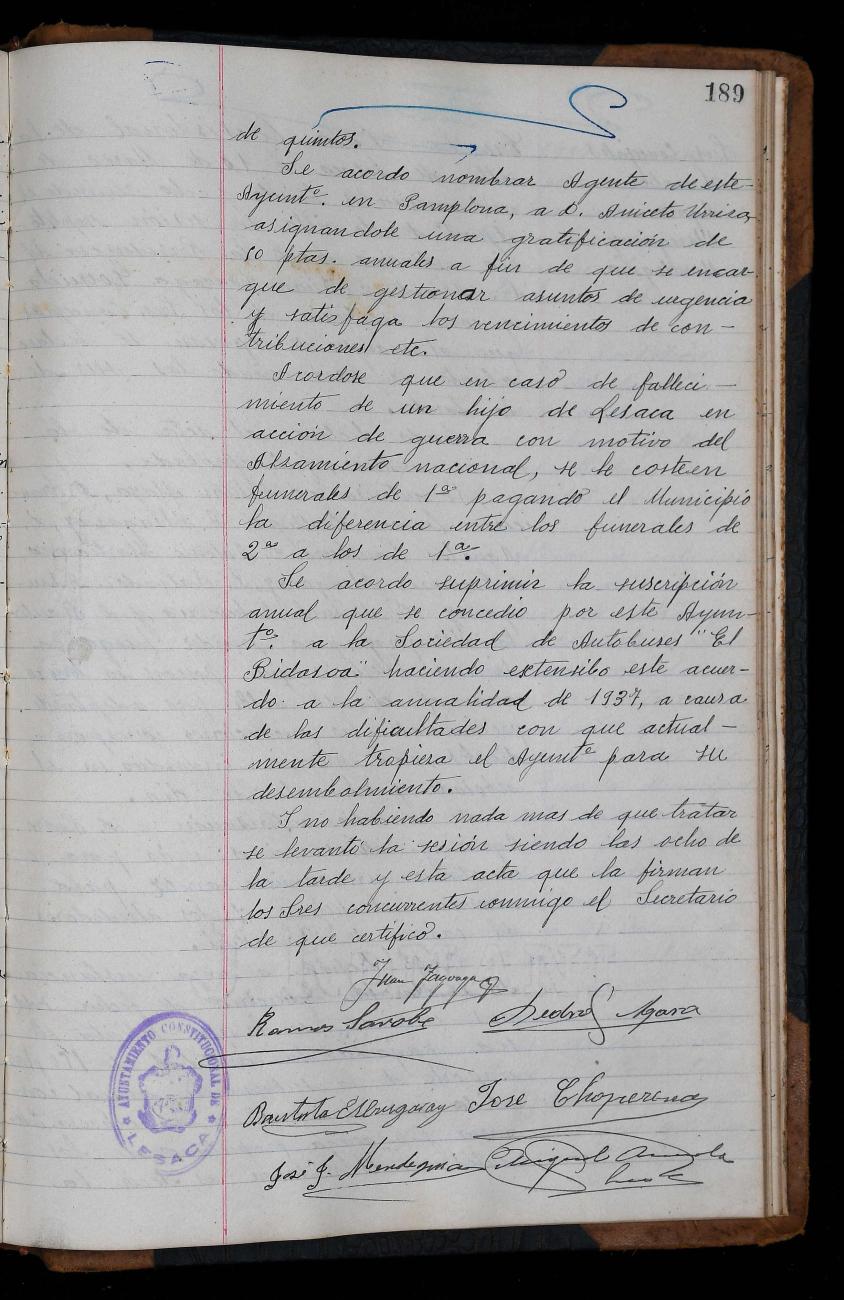 189
de quintos.
Se acordo nombrar Agente de este
Ayuntº. en Pamplona, a D. Aniceto Urriza,
asignandole una gratificación de
50 ptas. anuales a fin de que se encar-
gue de gestionar asuntos de urgencia
y satisfaga los vencimientos de con-
tribuciones etc.
Acordose que en caso de falleci-
miento de un hijo de Lesaca en
acción de guerra con motivo del
Alzamiento nacional, se le costeen
funerales de 1ª pagando el Municipio
la diferencia entre los funerales de
2ª a los de 1ª.
Se acordo suprimir la suscripción
anual que se concedio por este Ayun-
tº. a la Sociedad de Autobuses "El
Bidasoa" haciendo extensibo este acuer-
do a la anualidad de 1937, a causa
de las dificultades con que actual-
mente tropieza el Ayuntº para su
desembolmiento.
Y no habiendo nada mas de que tratar
se levantó la sesión siendo las ocho de
la tarde y esta acta que la firman
los Sres concurrentes conmigo el Secretario
de que certifico.
Juan
Ramos Sarobe Pedro
Bautista José Choperena
José J. Mendeguia Miguel
AYUNTAMIENTO CONSTITUCIONAL DE
LESACA